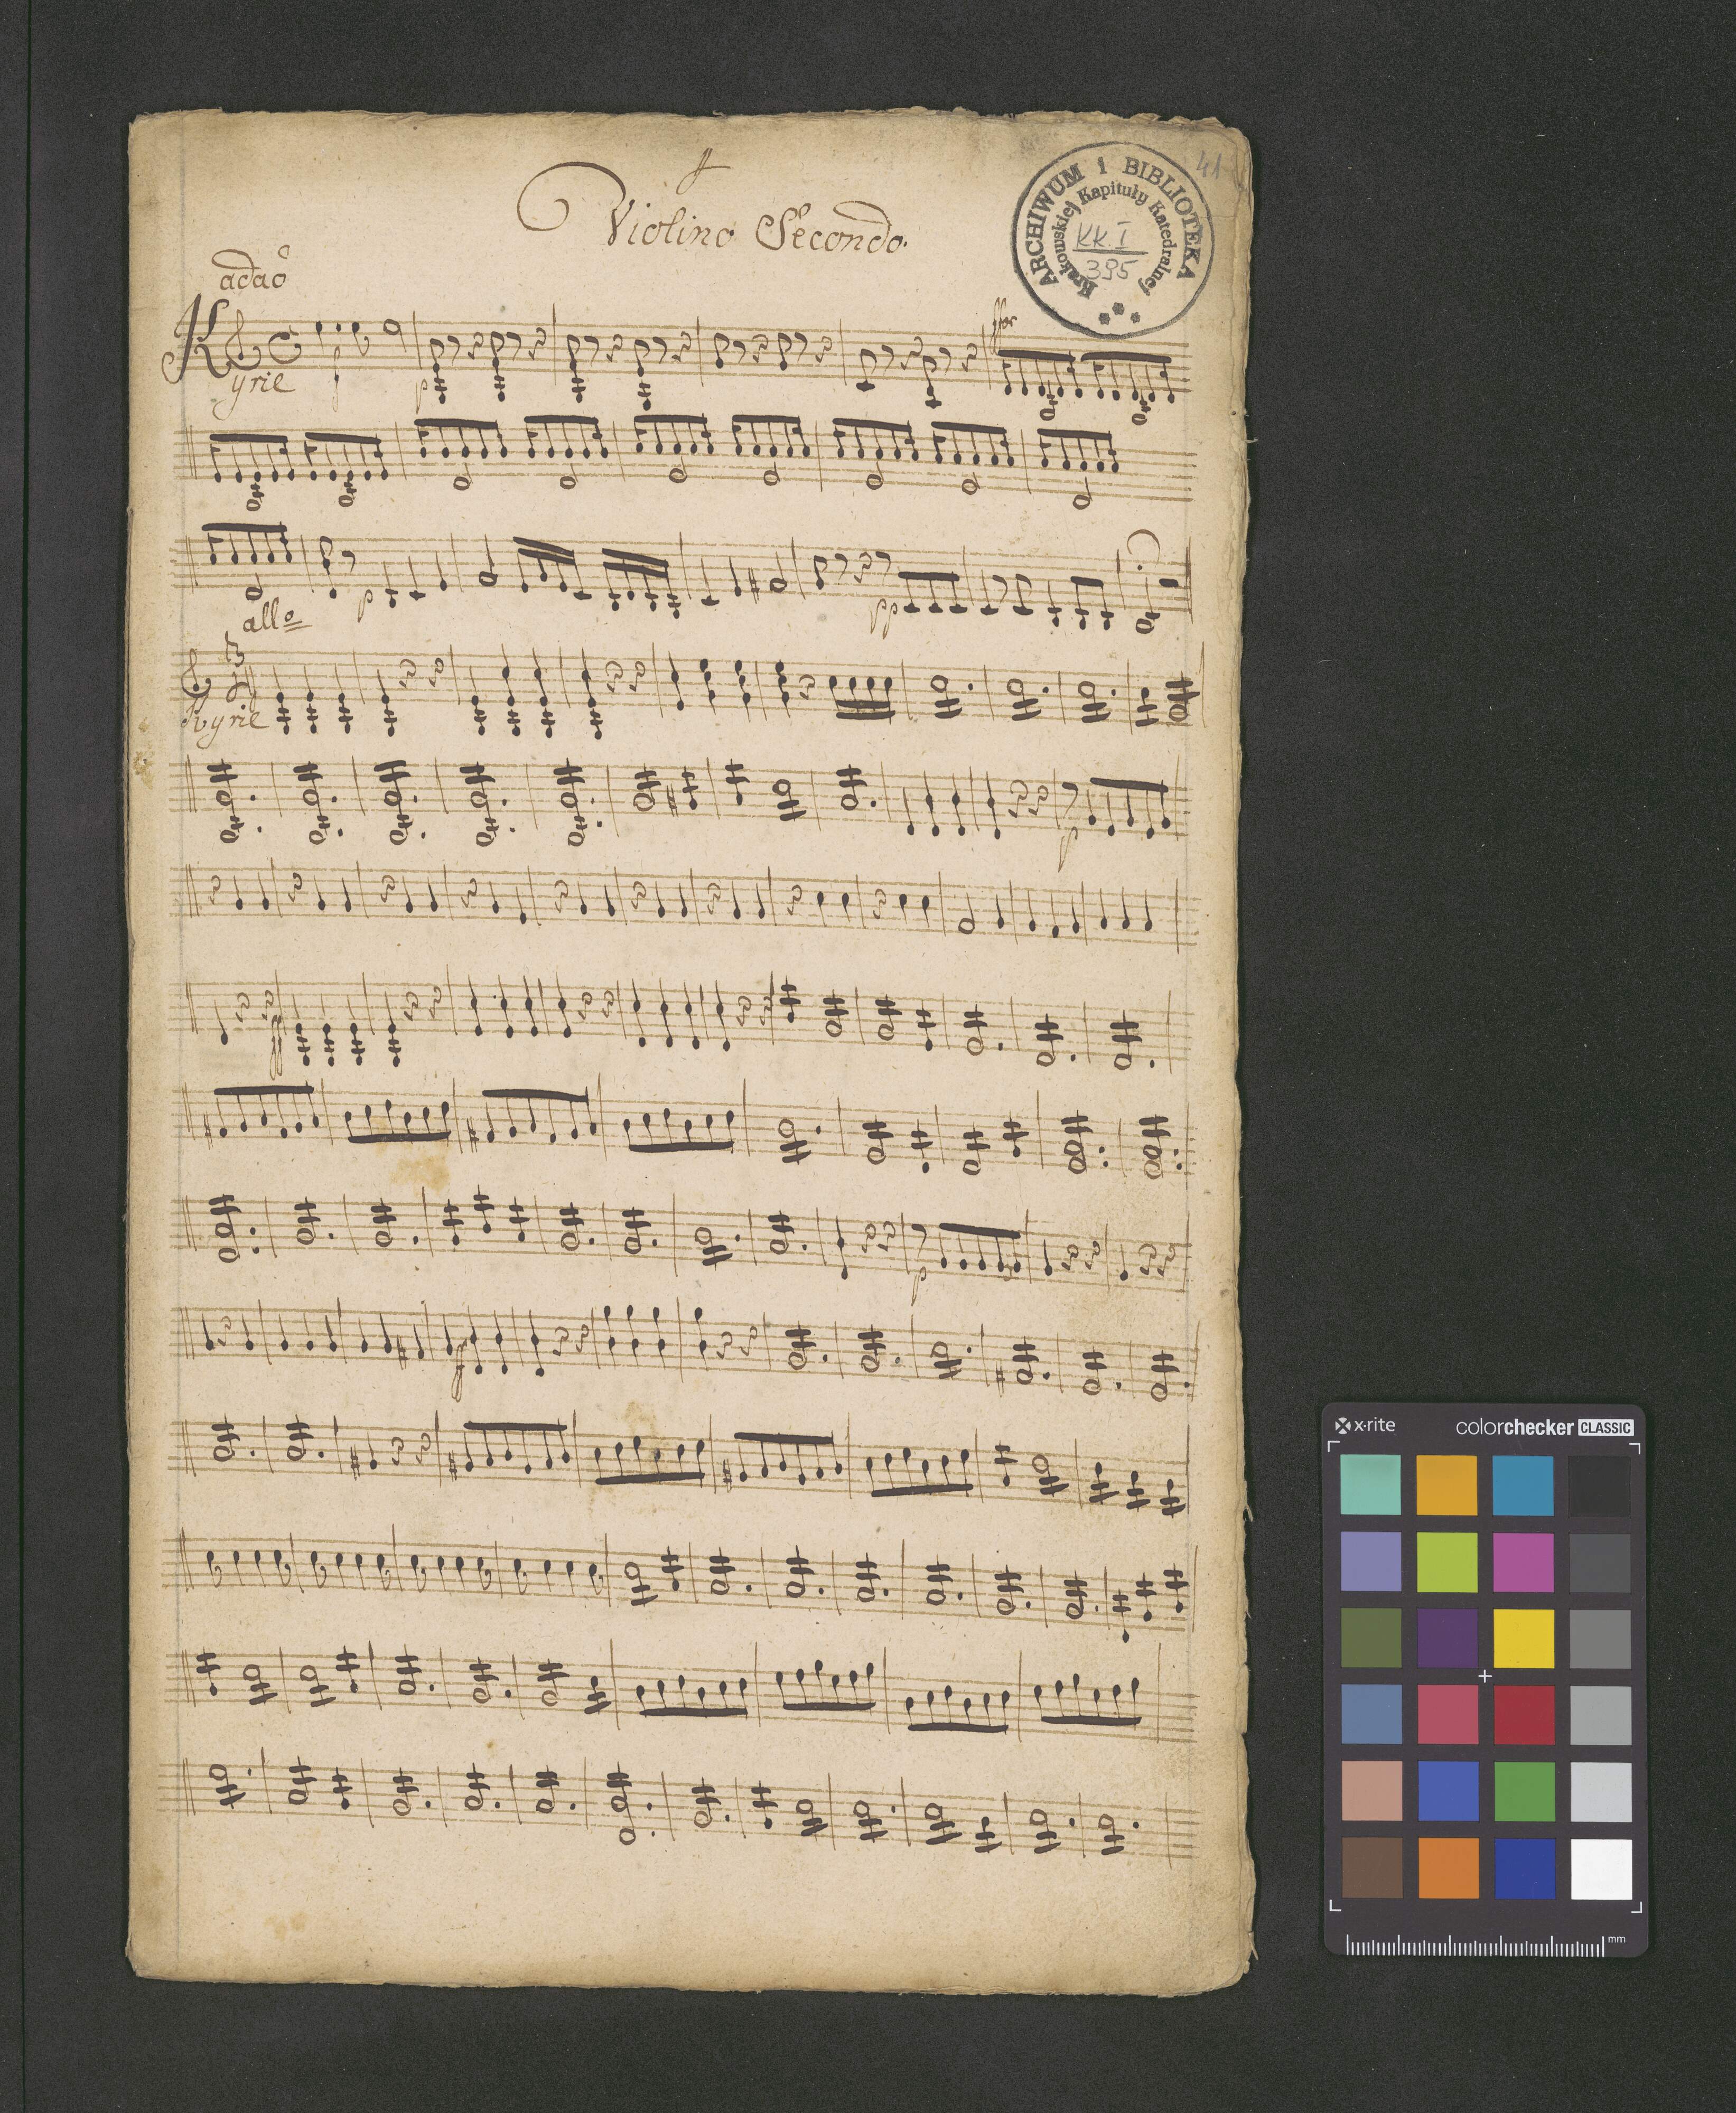 41
Violino Secondo.
ARCHIWUM I BIBLIOTEKA
Krakowskiej Kapituły Katedralnej
KK. I
395
adaº
Kyrie
p
f
p
pp
allº
Kyrie
p
p
x-rite
colorchecker CLASSIC
mm